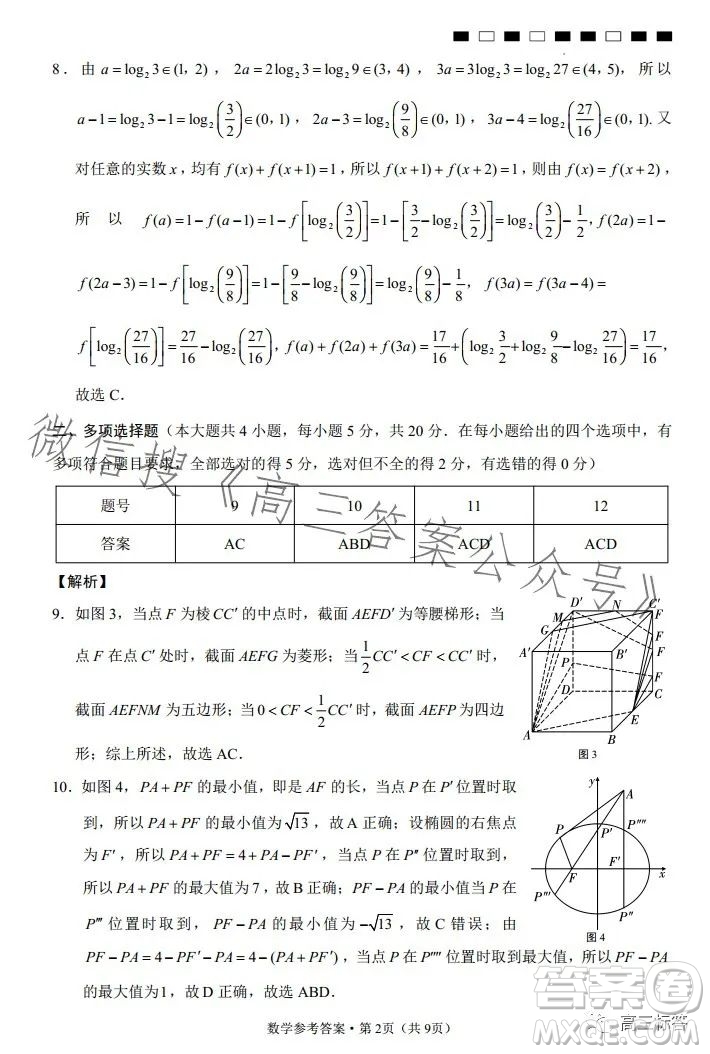 8．由 a=log₂3∈(1, 2)，2a=2log₂3=log₂9∈(3, 4)，3a=3log₂3=log₂27∈(4, 5)，所以
a−1=log₂3−1=log₂(3/2)∈(0, 1)，2a−3=log₂(9/8)∈(0, 1)，3a−4=log₂(27/16)∈(0, 1). 又
对任意的实数 x，均有 f(x)+f(x+1)=1，所以 f(x+1)+f(x+2)=1，则由 f(x)=f(x+2)，
所以 f(a)=1−f(a−1)=1−f[log₂(3/2)]=1−[3/2−log₂(3/2)]=log₂(3/2)−1/2，f(2a)=1−
f(2a−3)=1−f[log₂(9/8)]=1−[9/8−log₂(9/8)]=log₂(9/8)−1/8，f(3a)=f(3a−4)=
f[log₂(27/16)]=27/16−log₂(27/16)，f(a)+f(2a)+f(3a)=17/16+(log₂3/2+log₂9/8−log₂27/16)=17/16，
故选 C．
二、多项选择题（本大题共 4 小题，每小题 5 分，共 20 分．在每小题给出的四个选项中，有
多项符合题目要求，全部选对的得 5 分，选对但不全的得 2 分，有选错的得 0 分）
题号 9 10 11 12
答案 AC ABD ACD ACD
【解析】
9．如图 3，当点 F 为棱 CC′ 的中点时，截面 AEFD′ 为等腰梯形；当
点 F 在点 C′ 处时，截面 AEFG 为菱形；当 1/2CC′<CF<CC′ 时，
截面 AEFNM 为五边形；当 0<CF<1/2CC′ 时，截面 AEFP 为四边
形；综上所述，故选 AC．
D′ N C′
M F
G F
A′ B′ F
P F
D C
E
A B
图 3
10．如图 4，PA+PF 的最小值，即是 AF 的长，当点 P 在 P′ 位置时取
到，所以 PA+PF 的最小值为 √13，故 A 正确；设椭圆的右焦点
为 F′，所以 PA+PF=4+PA−PF′，当点 P 在 P″ 位置时取到，
所以 PA+PF 的最大值为 7，故 B 正确；PF−PA 的最小值当 P 在
P‴ 位置时取到，PF−PA 的最小值为 −√13，故 C 错误；由
PF−PA=4−PF′−PA=4−(PA+PF′)，当点 P 在 P⁗ 位置时取到，所以 PF−PA
的最大值为 1，故 D 正确，故选 ABD．
y
A
P P′ P⁗
F F′ x
P‴
P″
图 4
数学参考答案·第 2 页（共 9 页）
微信搜《高三答案公众号》
答案圈
MXQE.COM
高三标答